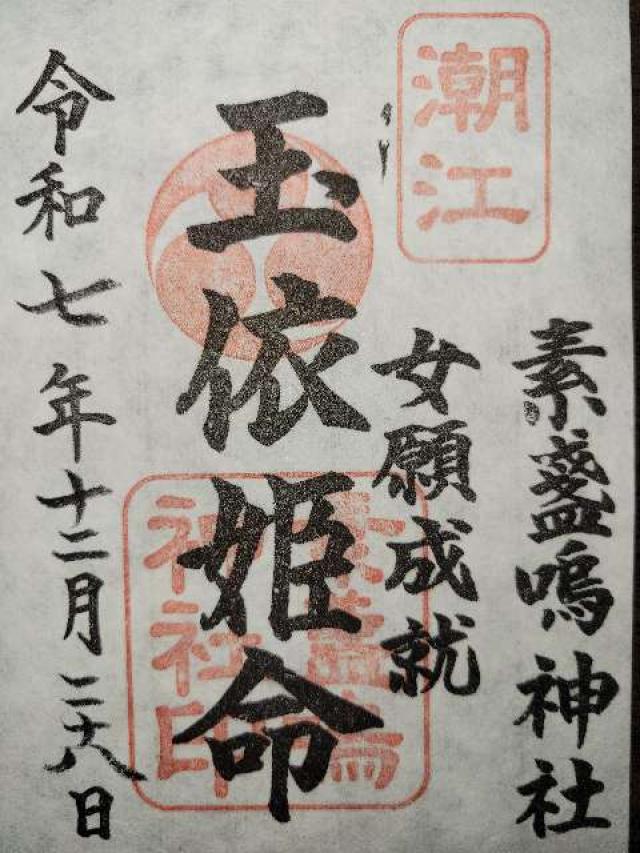 潮江
素盞嗚神社
女願成就
玉依姫命
素盞嗚
神社印
令和七年十二月二十八日